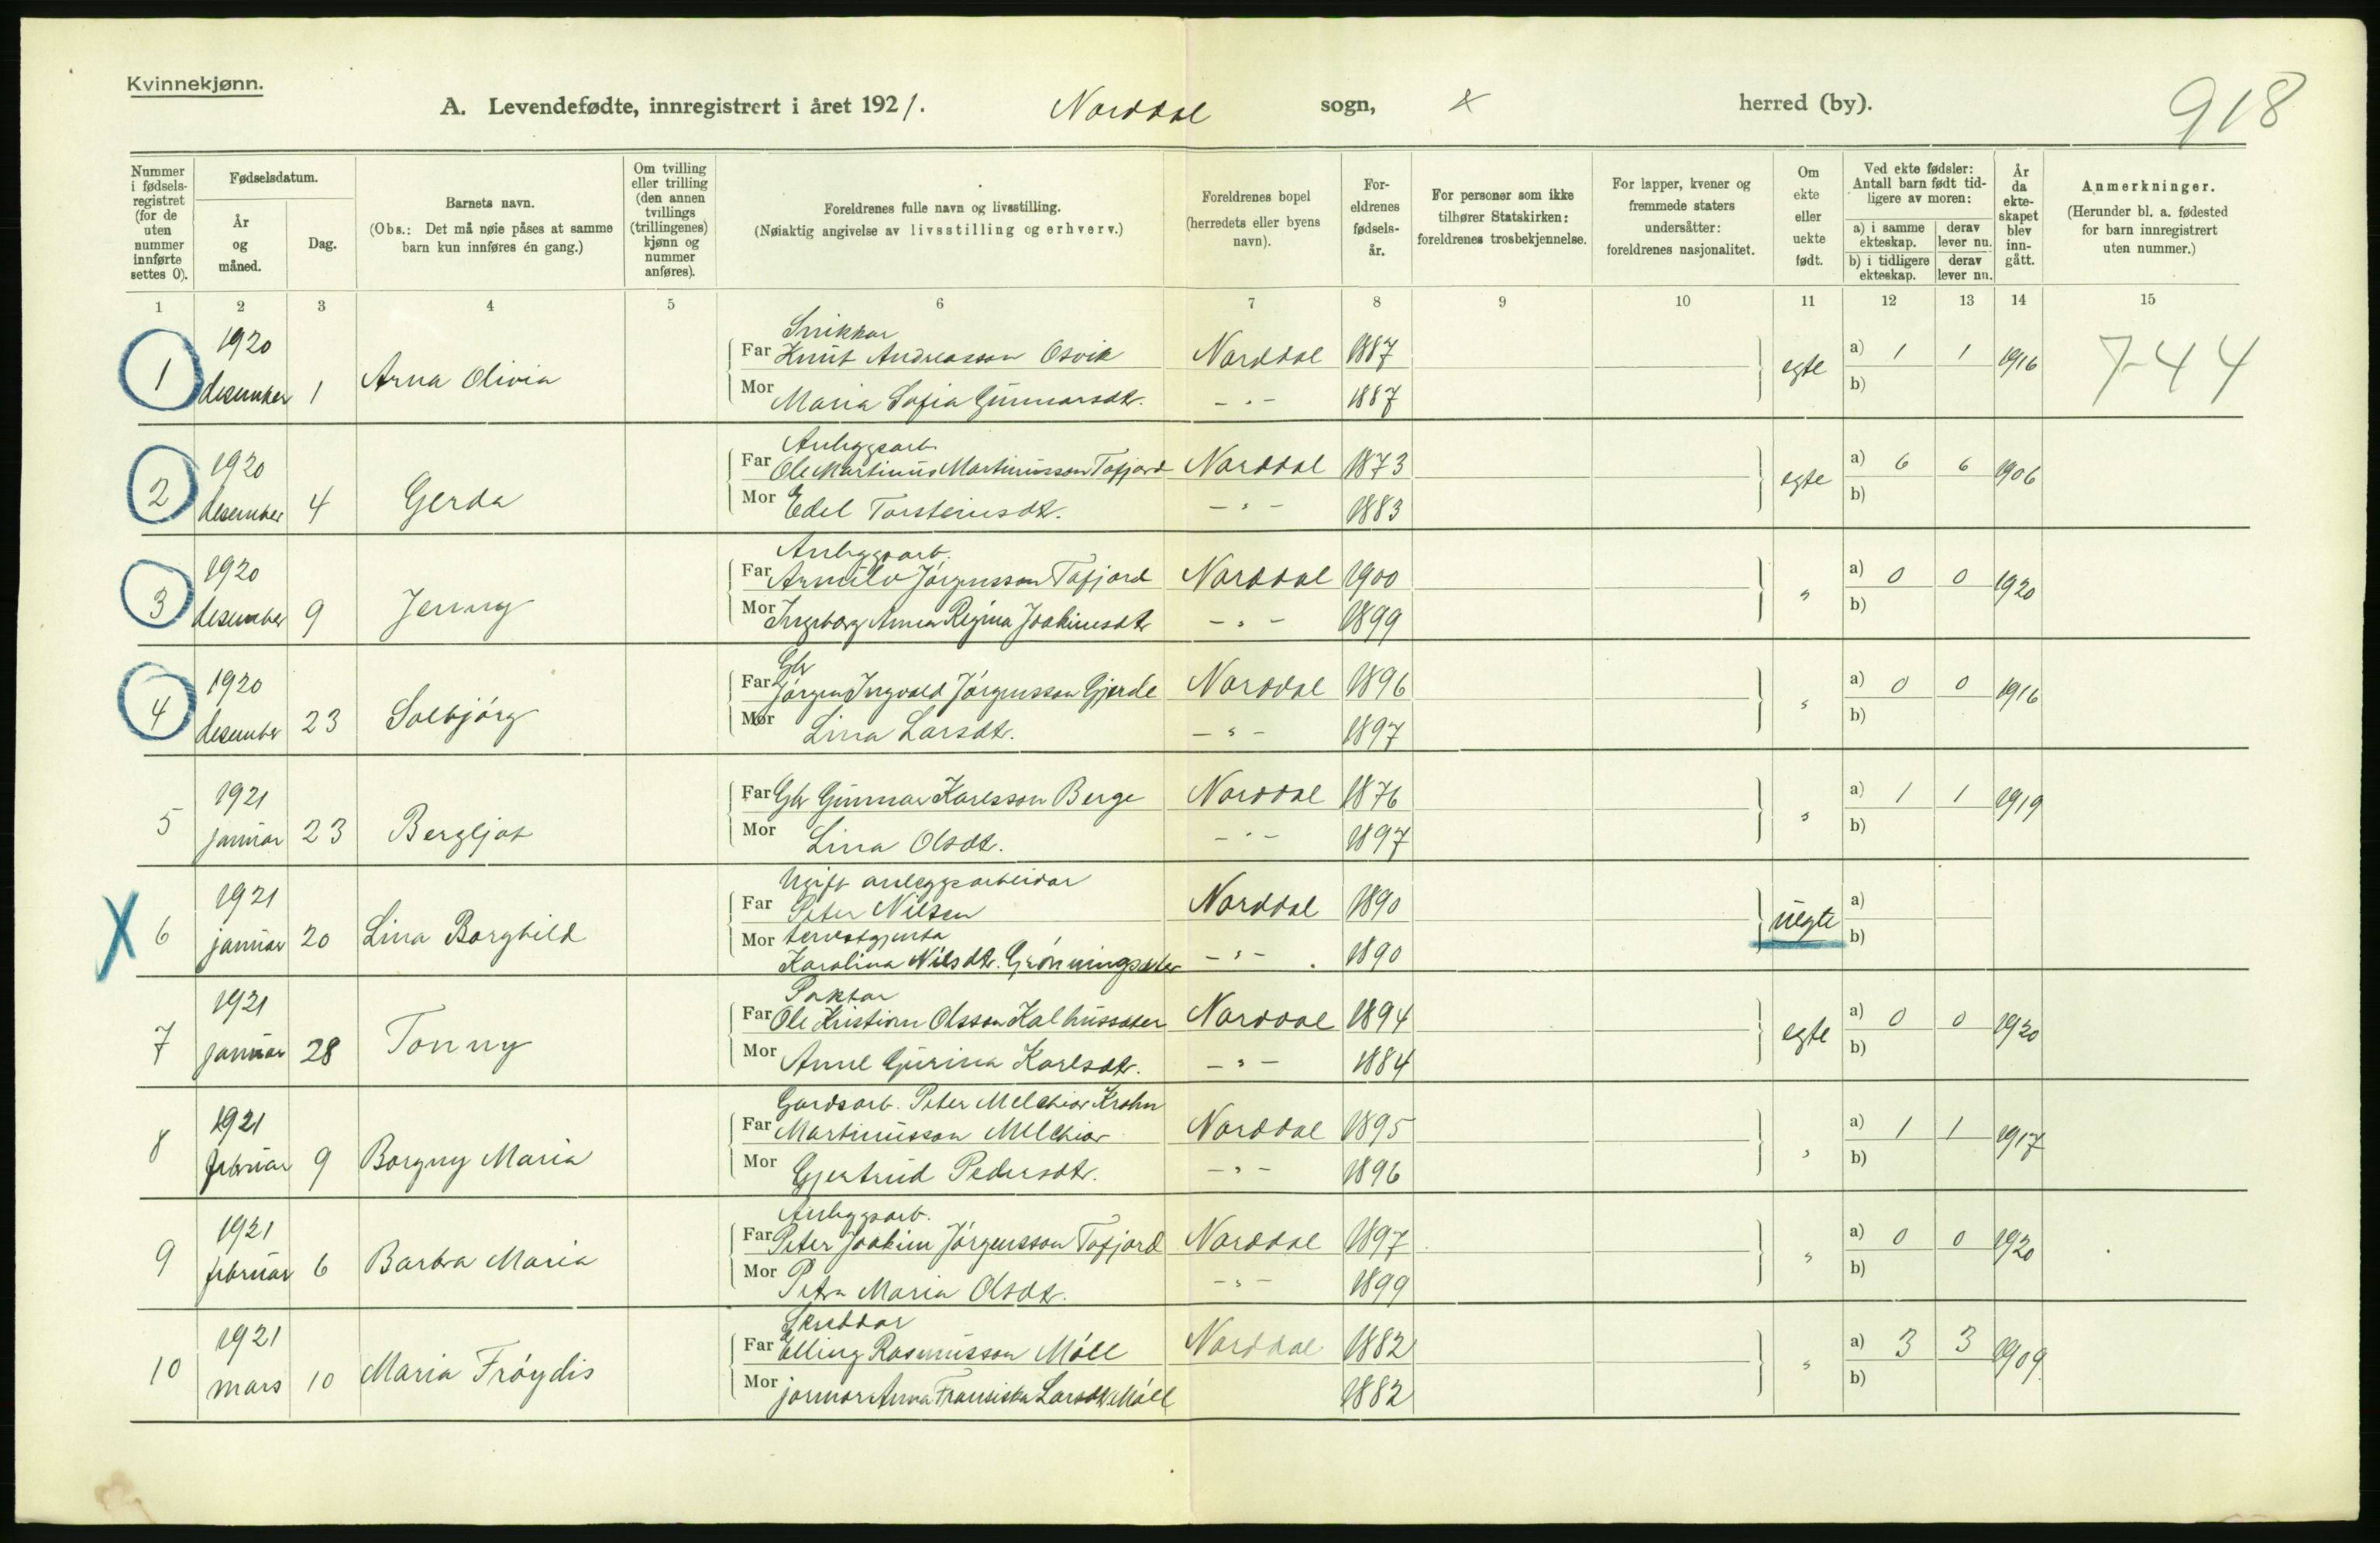 Kvinnekjønn.
A. Levendefødte, innregistrert i året 1921. Norddal sogn, herred (by). 918
Nummer i fødsels-registret (for de uten nummer innførte settes 0).
Fødselsdatum.
År og måned.
Dag.
Barnets navn.
(Obs.: Det må nøie påses at samme barn kun innføres én gang.)
Om tvilling eller trilling (den annen tvillings (trillingenes) kjønn og nummer anføres).
Foreldrenes fulle navn og livsstilling.
(Nøiaktig angivelse av livsstilling og erhverv.)
Foreldrenes bopel (herredets eller byens navn).
For-eldrenes fødsels-år.
For personer som ikke tilhører Statskirken: foreldrenes trosbekjennelse.
For lapper, kvener og fremmede staters undersåtter: foreldrenes nasjonalitet.
Om ekte eller uekte født.
Ved ekte fødsler: Antall barn født tid-ligere av moren:
a) i samme ekteskap. derav lever nu.
b) i tidligere ekteskap. derav lever nu.
År da ekte-skapet blev inn-gått.
Anmerkninger.
(Herunder bl. a. fødested for barn innregistrert uten nummer.)
1 2 3 4 5 6 7 8 9 10 11 12 13 14 15
Snikkar
1 1920 desember 1 Arna Olivia Far Knut Andreasson Osvik Norddal 1887 egte a) 1 1 1916 744
Mor Maria Sofia Gunnarsdtr. -"- 1887 b)
Anleggsarb.
2 1920 desember 4 Gerda Far Ole Martinus Martinusson Tafjord Norddal 1873 egte a) 6 6 1906
Mor Edel Torsteinsdtr. -"- 1883 b)
Anleggsarb.
3 1920 desember 9 Jenny Far Jørgensson Tafjord Norddal 1900 " a) 0 0 1920
Mor Ingeborg Anna Regina Joakimsdtr -"- 1899 b)
Gbr
4 1920 desember 23 Solbjórg Far Jórgen Ingvald Jórgensson Gjerde Norddal 1896 " a) 0 0 1916
Mor Lina Larsdtr. -"- 1897 b)
5 1921 januar 23 Bergljot Far Gbr Gunnar Karlsson Berge Norddal 1876 " a) 1 1 1919
Mor Lina Olsdtr. -"- 1897 b)
Ugift anleggsarbeidar
X 6 1921 januar 20 Lina Borghild Far Peter Nilsen Norddal 1890 uegte a)
Mor tenestgjenta
Karolina Nilsdtr. Grónningsæter -"- 1890 b)
Paktar
7 1921 januar 28 Tonny Far Ole Kristian Olsson Kalhussæter Norddal 1894 egte a) 0 0 1920
Mor Anne Gurina Karlsdtr. -"- 1884 b)
Gardsarb. Peter Melchior Krohn
8 1921 februar 9 Borgny Maria Far Martinusson Melchior Norddal 1895 " a) 1 1 1917
Mor Gjertrud Pedersdtr. -"- 1896 b)
Anleggsarb.
9 1921 februar 6 Barbra Maria Far Peter Joakim Jórgensson Tafjord Norddal 1897 " a) 0 0 1920
Mor Petra Maria Olsdtr. -"- 1899 b)
Skreddar
10 1921 mars 10 Maria Fróydis Far Elling Rasmusson Móll Norddal 1882 " a) 3 3 1909
Mor jormor Anna Fransiska Larsdtr. Móll 1882 b)